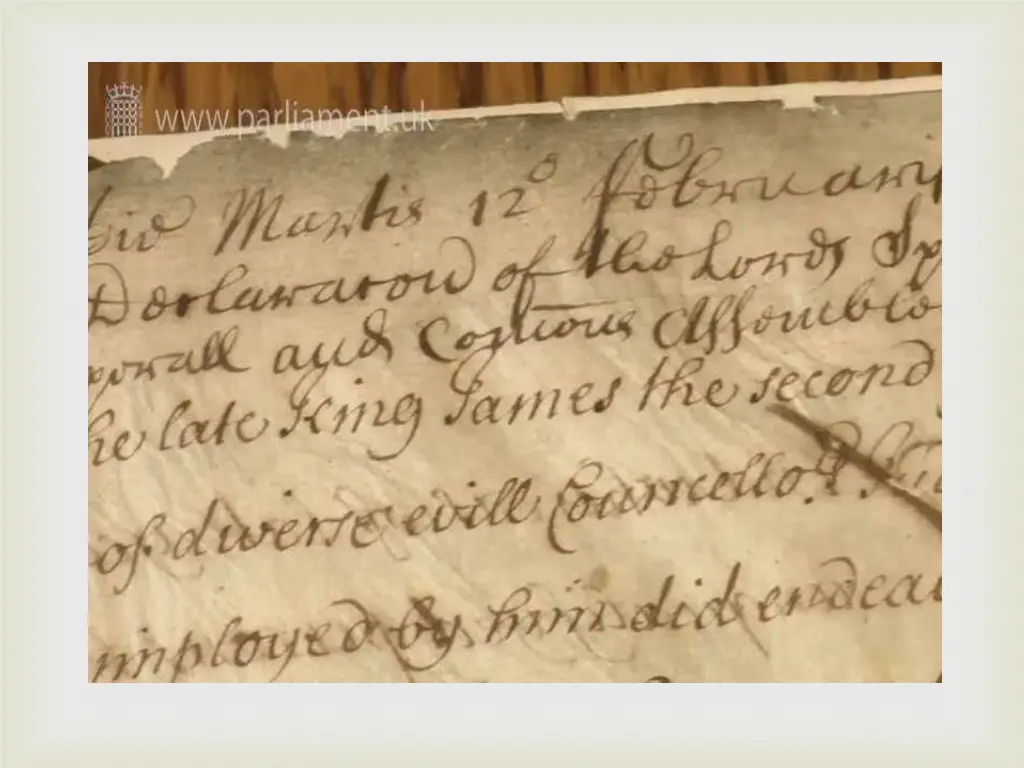 www.parliament.uk
die Martis 12° February
Declaracon of the Lords Sp
porall and Com̄ons Assemble
he late King James the second
of diverse evill Councello.rs
imployed by him did endeau